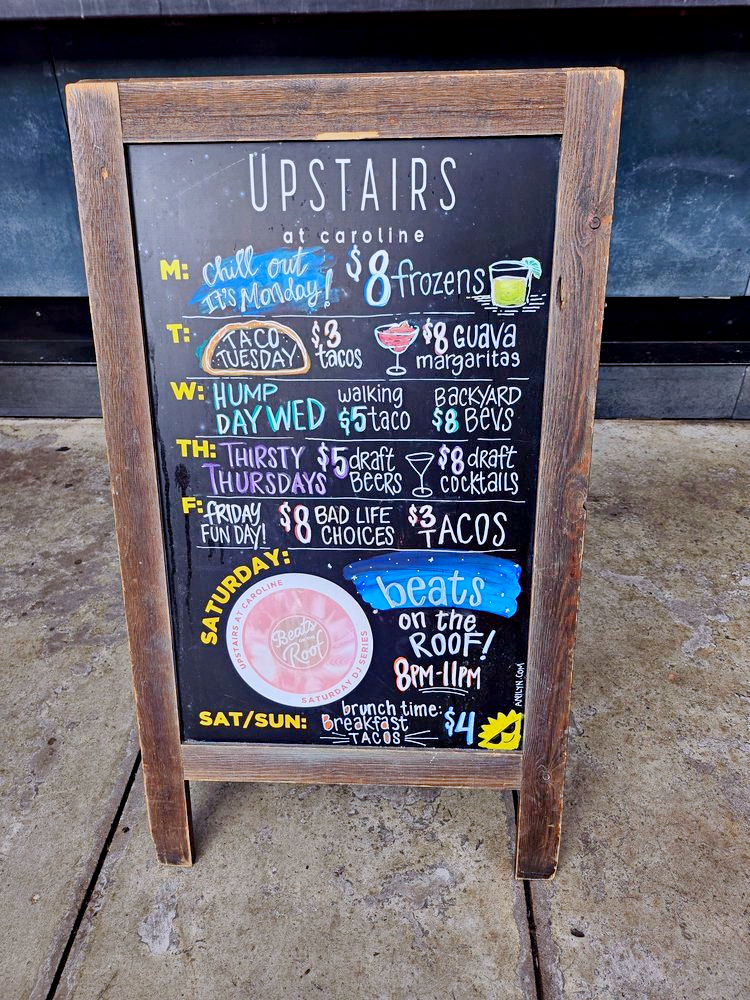 UPSTAIRS
at caroline
M: Chill out It's Monday! $8 frozens
T: TACO TUESDAY $3 tacos $8 GUAVA margaritas
W: HUMP DAY WED walking $5 taco BACKYARD $8 BEVS
TH: THIRSTY THURSDAYS $5 draft BEERS $8 draft COCKTAILS
F: FRIDAY FUN DAY! $8 BAD LIFE CHOICES $3 TACOS
SATURDAY:
UPSTAIRS AT CAROLINE
Beats
Roof
SATURDAY DJ SERIES
beats
on the
ROOF!
8PM-11PM
ANILYN.COM
SAT/SUN: brunch time: Breakfast TACOS $4